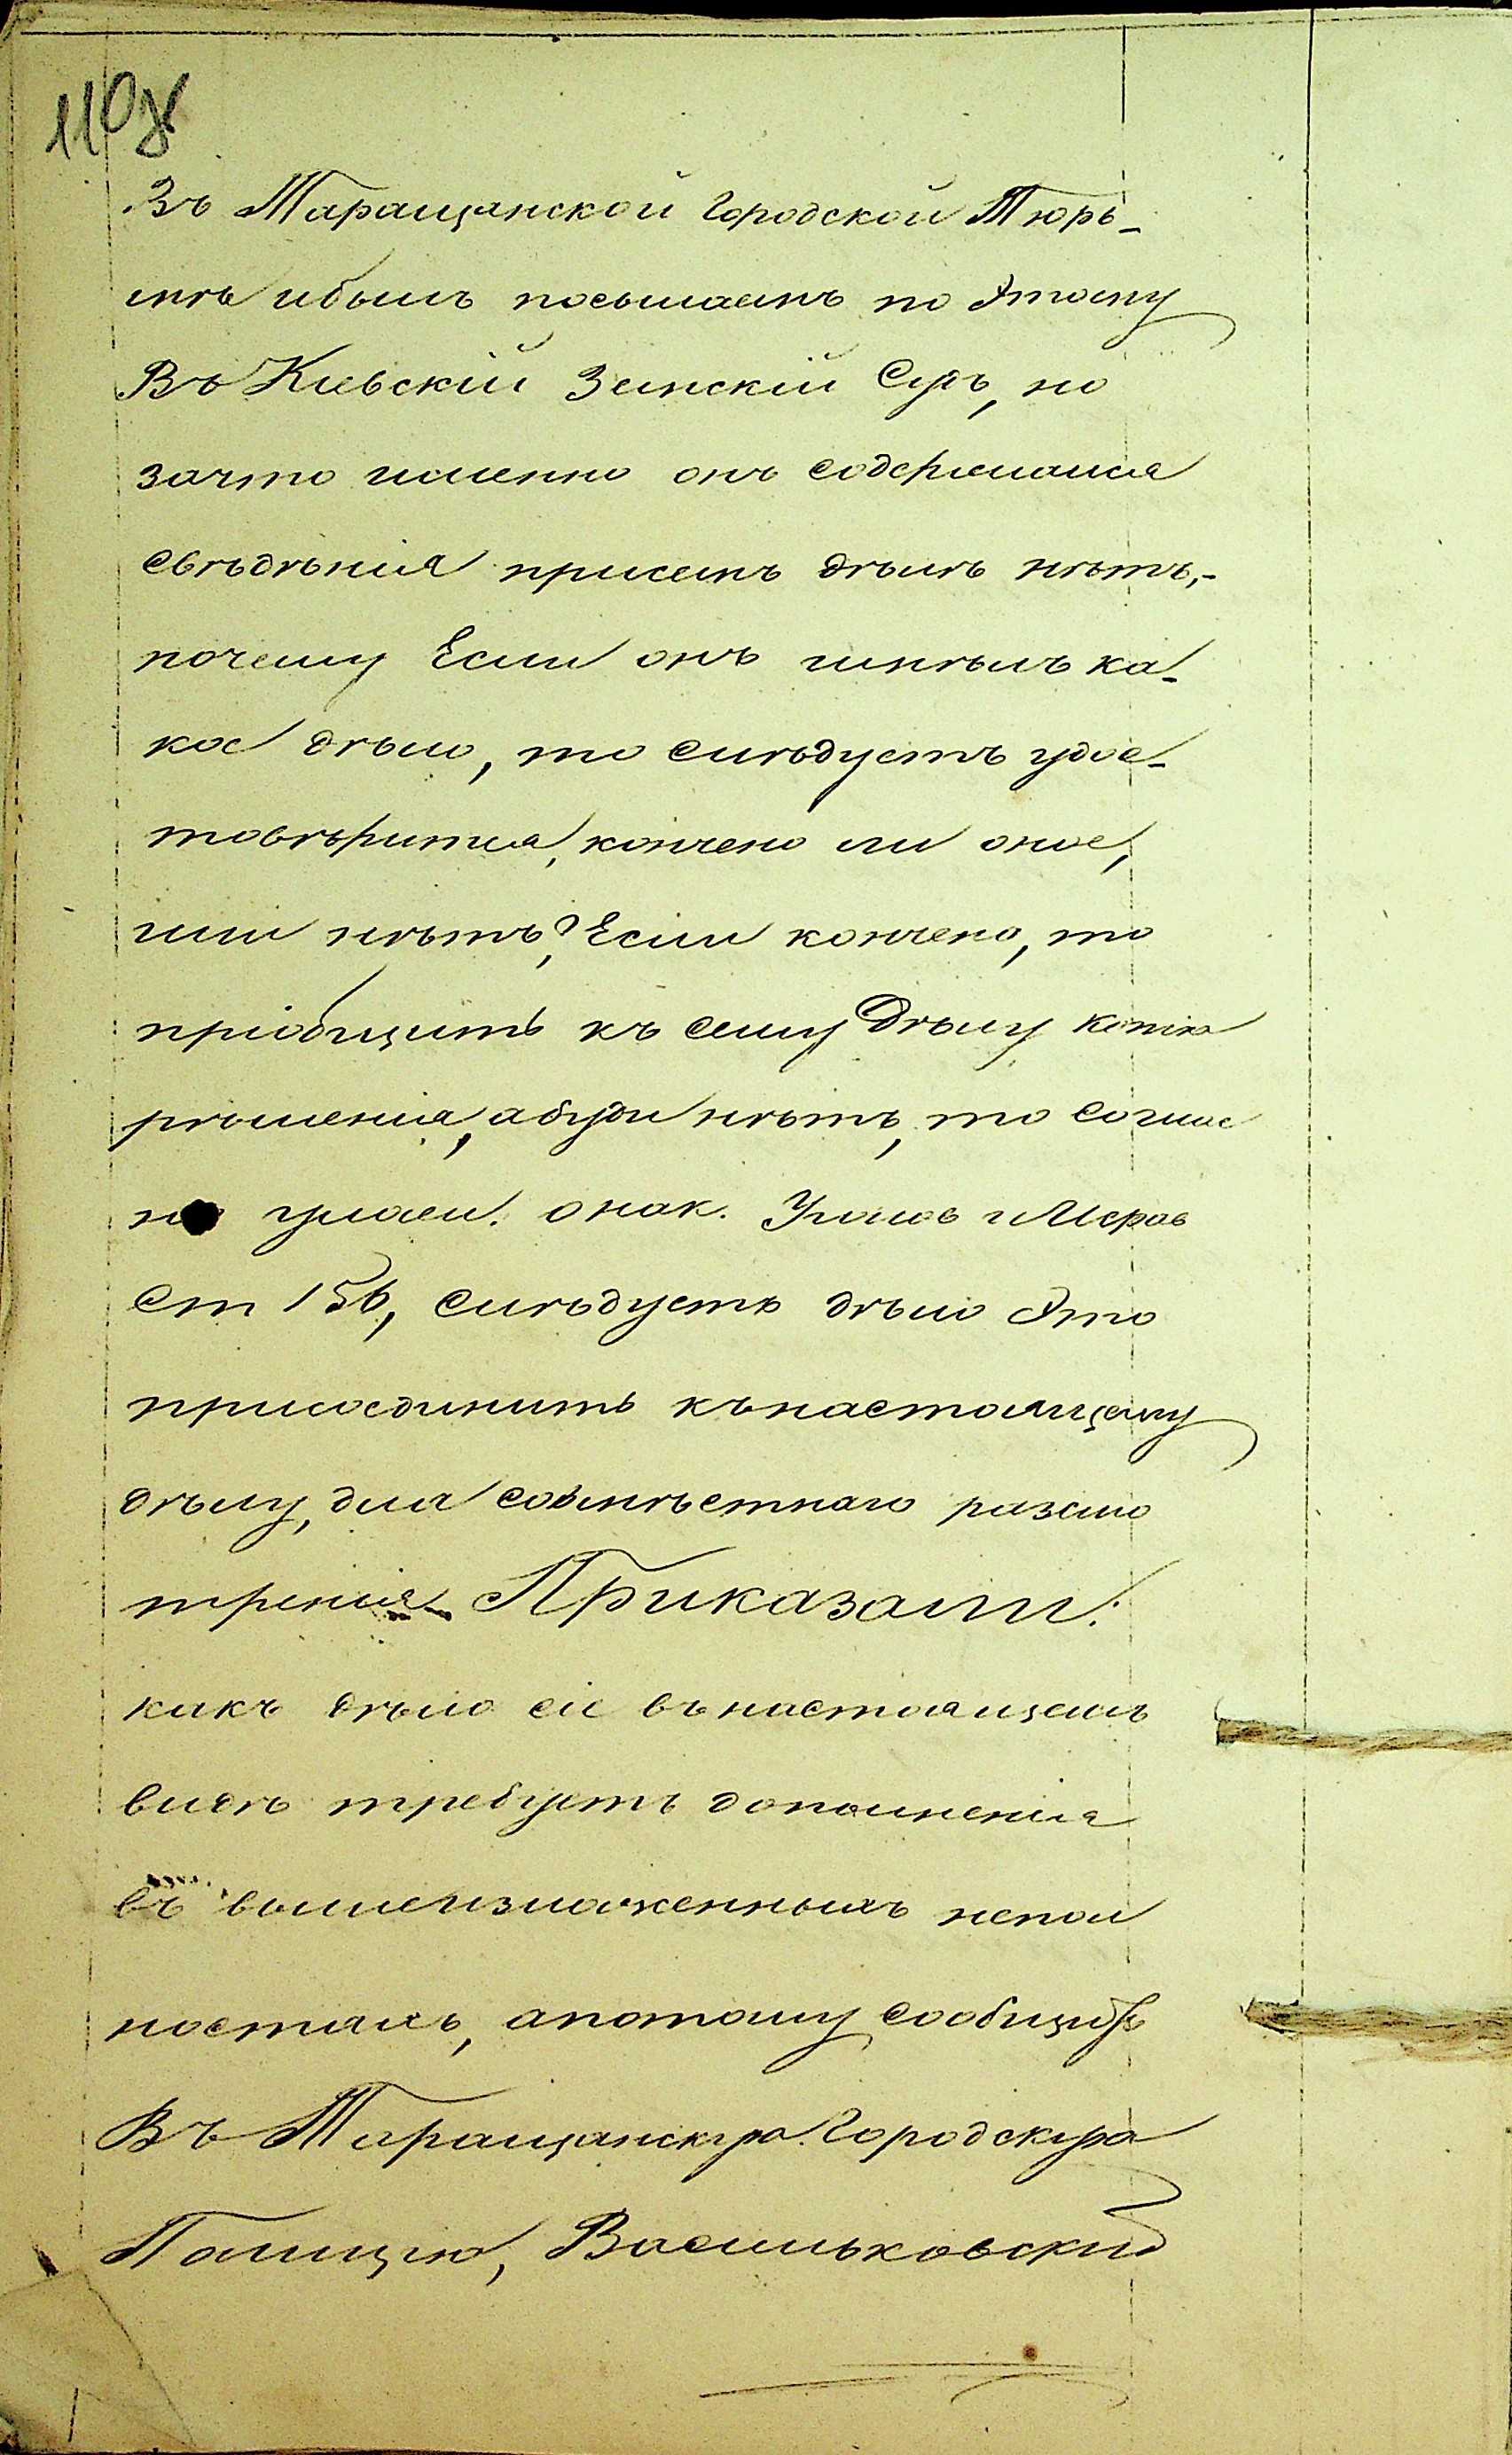 110
Въ Таращанской городской Тюрь-
мѣ ибылъ посылаемъ по Этому
Въ Кіевскій Земскій Судъ, но
зачто именно онъ содержался
свѣдѣнія присемъ дѣлѣ нѣтъ,-
почему Если онъ имѣлъ ка-
кое дѣло, то слѣдуетъ удос-
товѣрится, кончено ли оное,
или нѣтъ? Если кончено, то
пріобщить къ сему Дѣлу копію
рѣшенія, абуди нѣтъ, то соглас
но улож. онак. Уголов иИсправ
Ст 156, слѣдуетъ дѣло Это
присоединить кънастоящему
дѣлу, для совмѣстнаго разсмо
трѣнія Приказали:
какъ дѣло сіе внастоящемъ
видѣ требуетъ дополненія
въ вышеизложенныхъ непол
ностяхъ, апотому сообщить
Въ Таращанскую Городскую
Полицію, Васильковскій